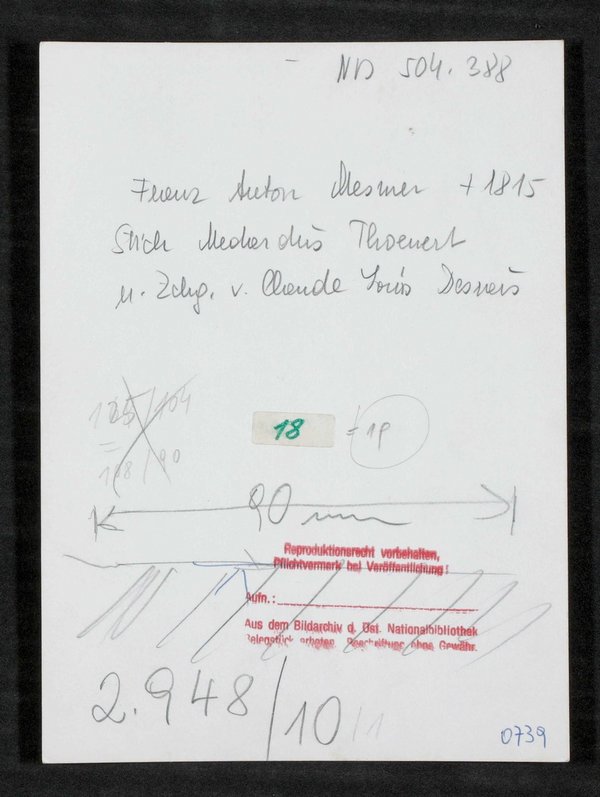 NB 504.388
Franz Anton Mesmer + 1815
Stich Medardus Thoenert
n. Zchg. v. Claude Louis Desrais
185/104
= 18 = 1P
108/90
90 mm
Reproduktionsrecht vorbehalten,
Pflichtvermerk bei Veröffentlichung:
Aufn.:
Aus dem Bildarchiv d. Öst. Nationalbibliothek
Belegstück erbeten. Beschriftung ohne Gewähr.
2.948/10/1
0739